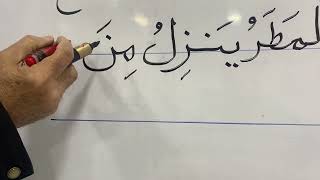 لمَطَرُ يَنزِلُ مِنَ